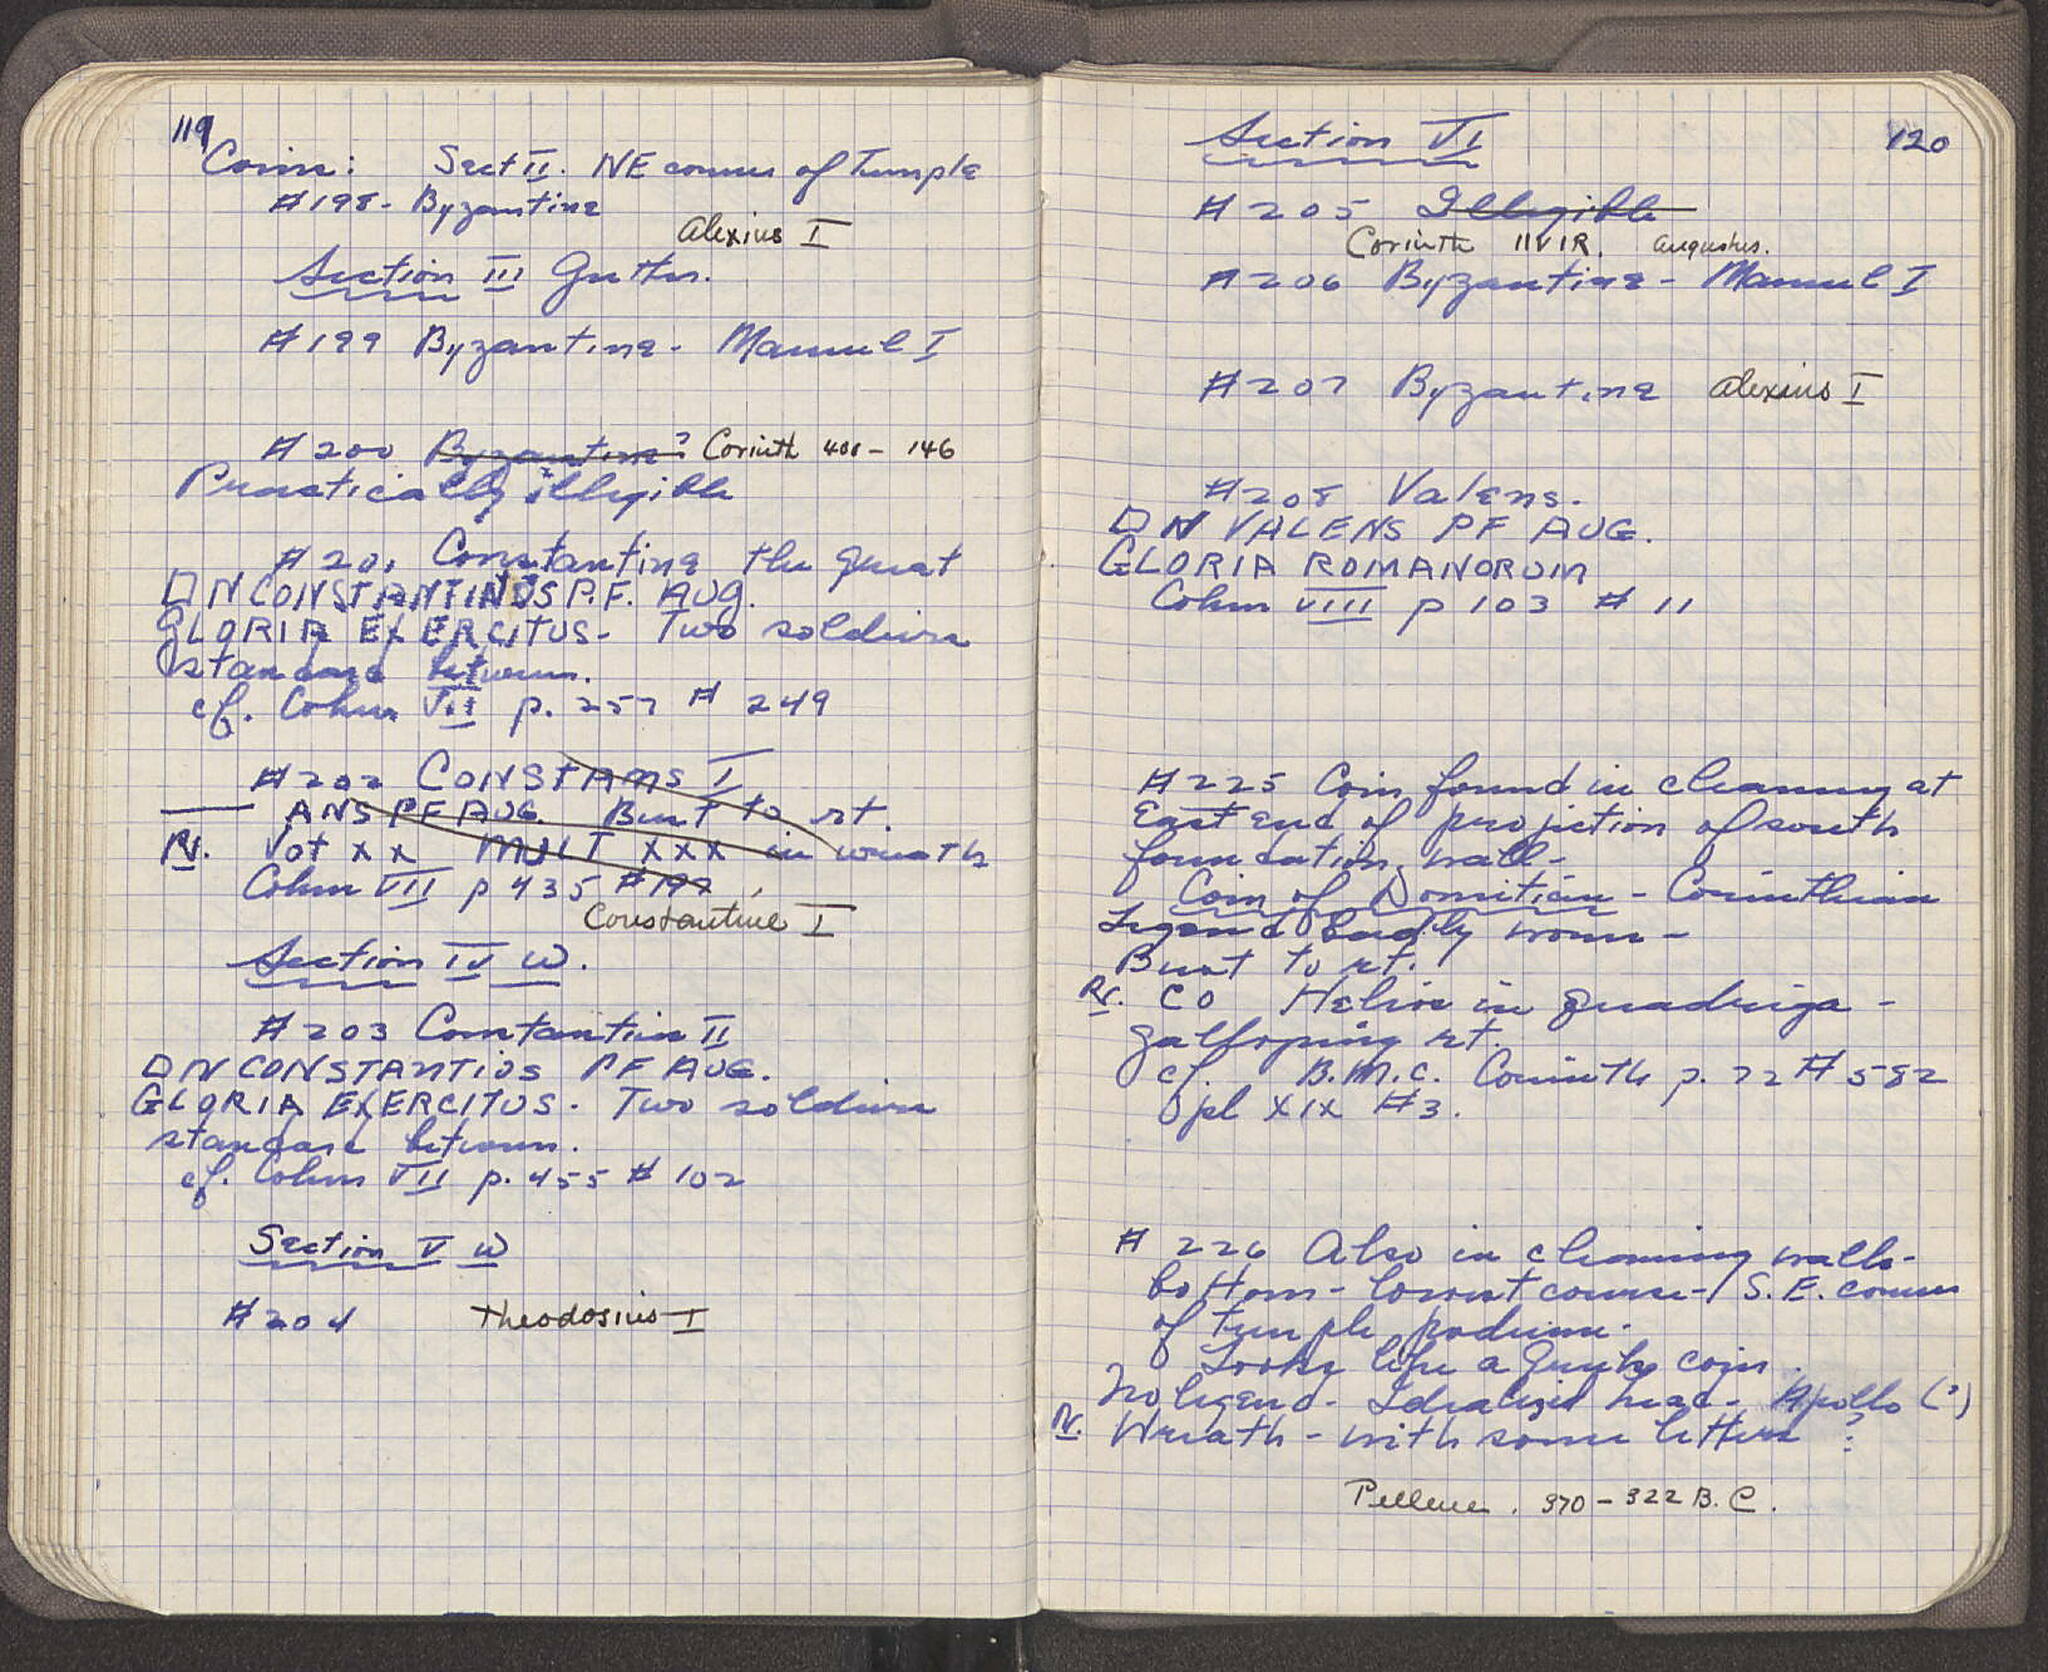 119
Coins: Sect II. NE corner of Temple
#198- Byzantine
Alexius I
Section III Gutter.
#199 Byzantine- Manuel I
#200 Byzantine? Corinth 400-146
Practically illegible
#201 Constantine the great
DN CONSTANTINUS P.F. AUG.
GLORIA EXERCITUS- Two soldiers
standard between.
cf. Cohen VII p. 257 # 249
#202 CONSTANS I
— ANS PF AUG. Bust to rt.
Rv. Vot XX MULT XXX in wreath
Cohen VII p 435 #197
Constantine I
Section IV W.
#203 Constantius II
DN CONSTANTIUS PF AUG.
GLORIA EXERCITUS. Two soldiers
standard between.
cf. Cohen VII p. 455 # 102
Section V W
#204 Theodosius I
120
Section VI
#205 Illegible
Corinth IIVIR. Augustus.
#206 Byzantine- Manuel I
#207 Byzantine Alexius I
#208 Valens.
DN VALENS PF AUG.
GLORIA ROMANORUM
Cohen VIII p 103 # 11
#225 Coin found in cleaning at
East end of projection of south
foundation wall-
Coin of Domitian - Corinthian
Legend badly worn-
Bust to rt.
Rv. CO Helios in quadriga-
galloping rt.
cf. B.M.C. Corinth p. 72 # 582
pl XIX #3.
# 226 Also in cleaning walls-
bottom- lowest course- S.E. corner
of temple podium.
Looks like a Greek coin.
No legend- Idealized head- Apollo (?)
Rv. Wreath- with some letters ?
Pellene. 370-322 B.C.